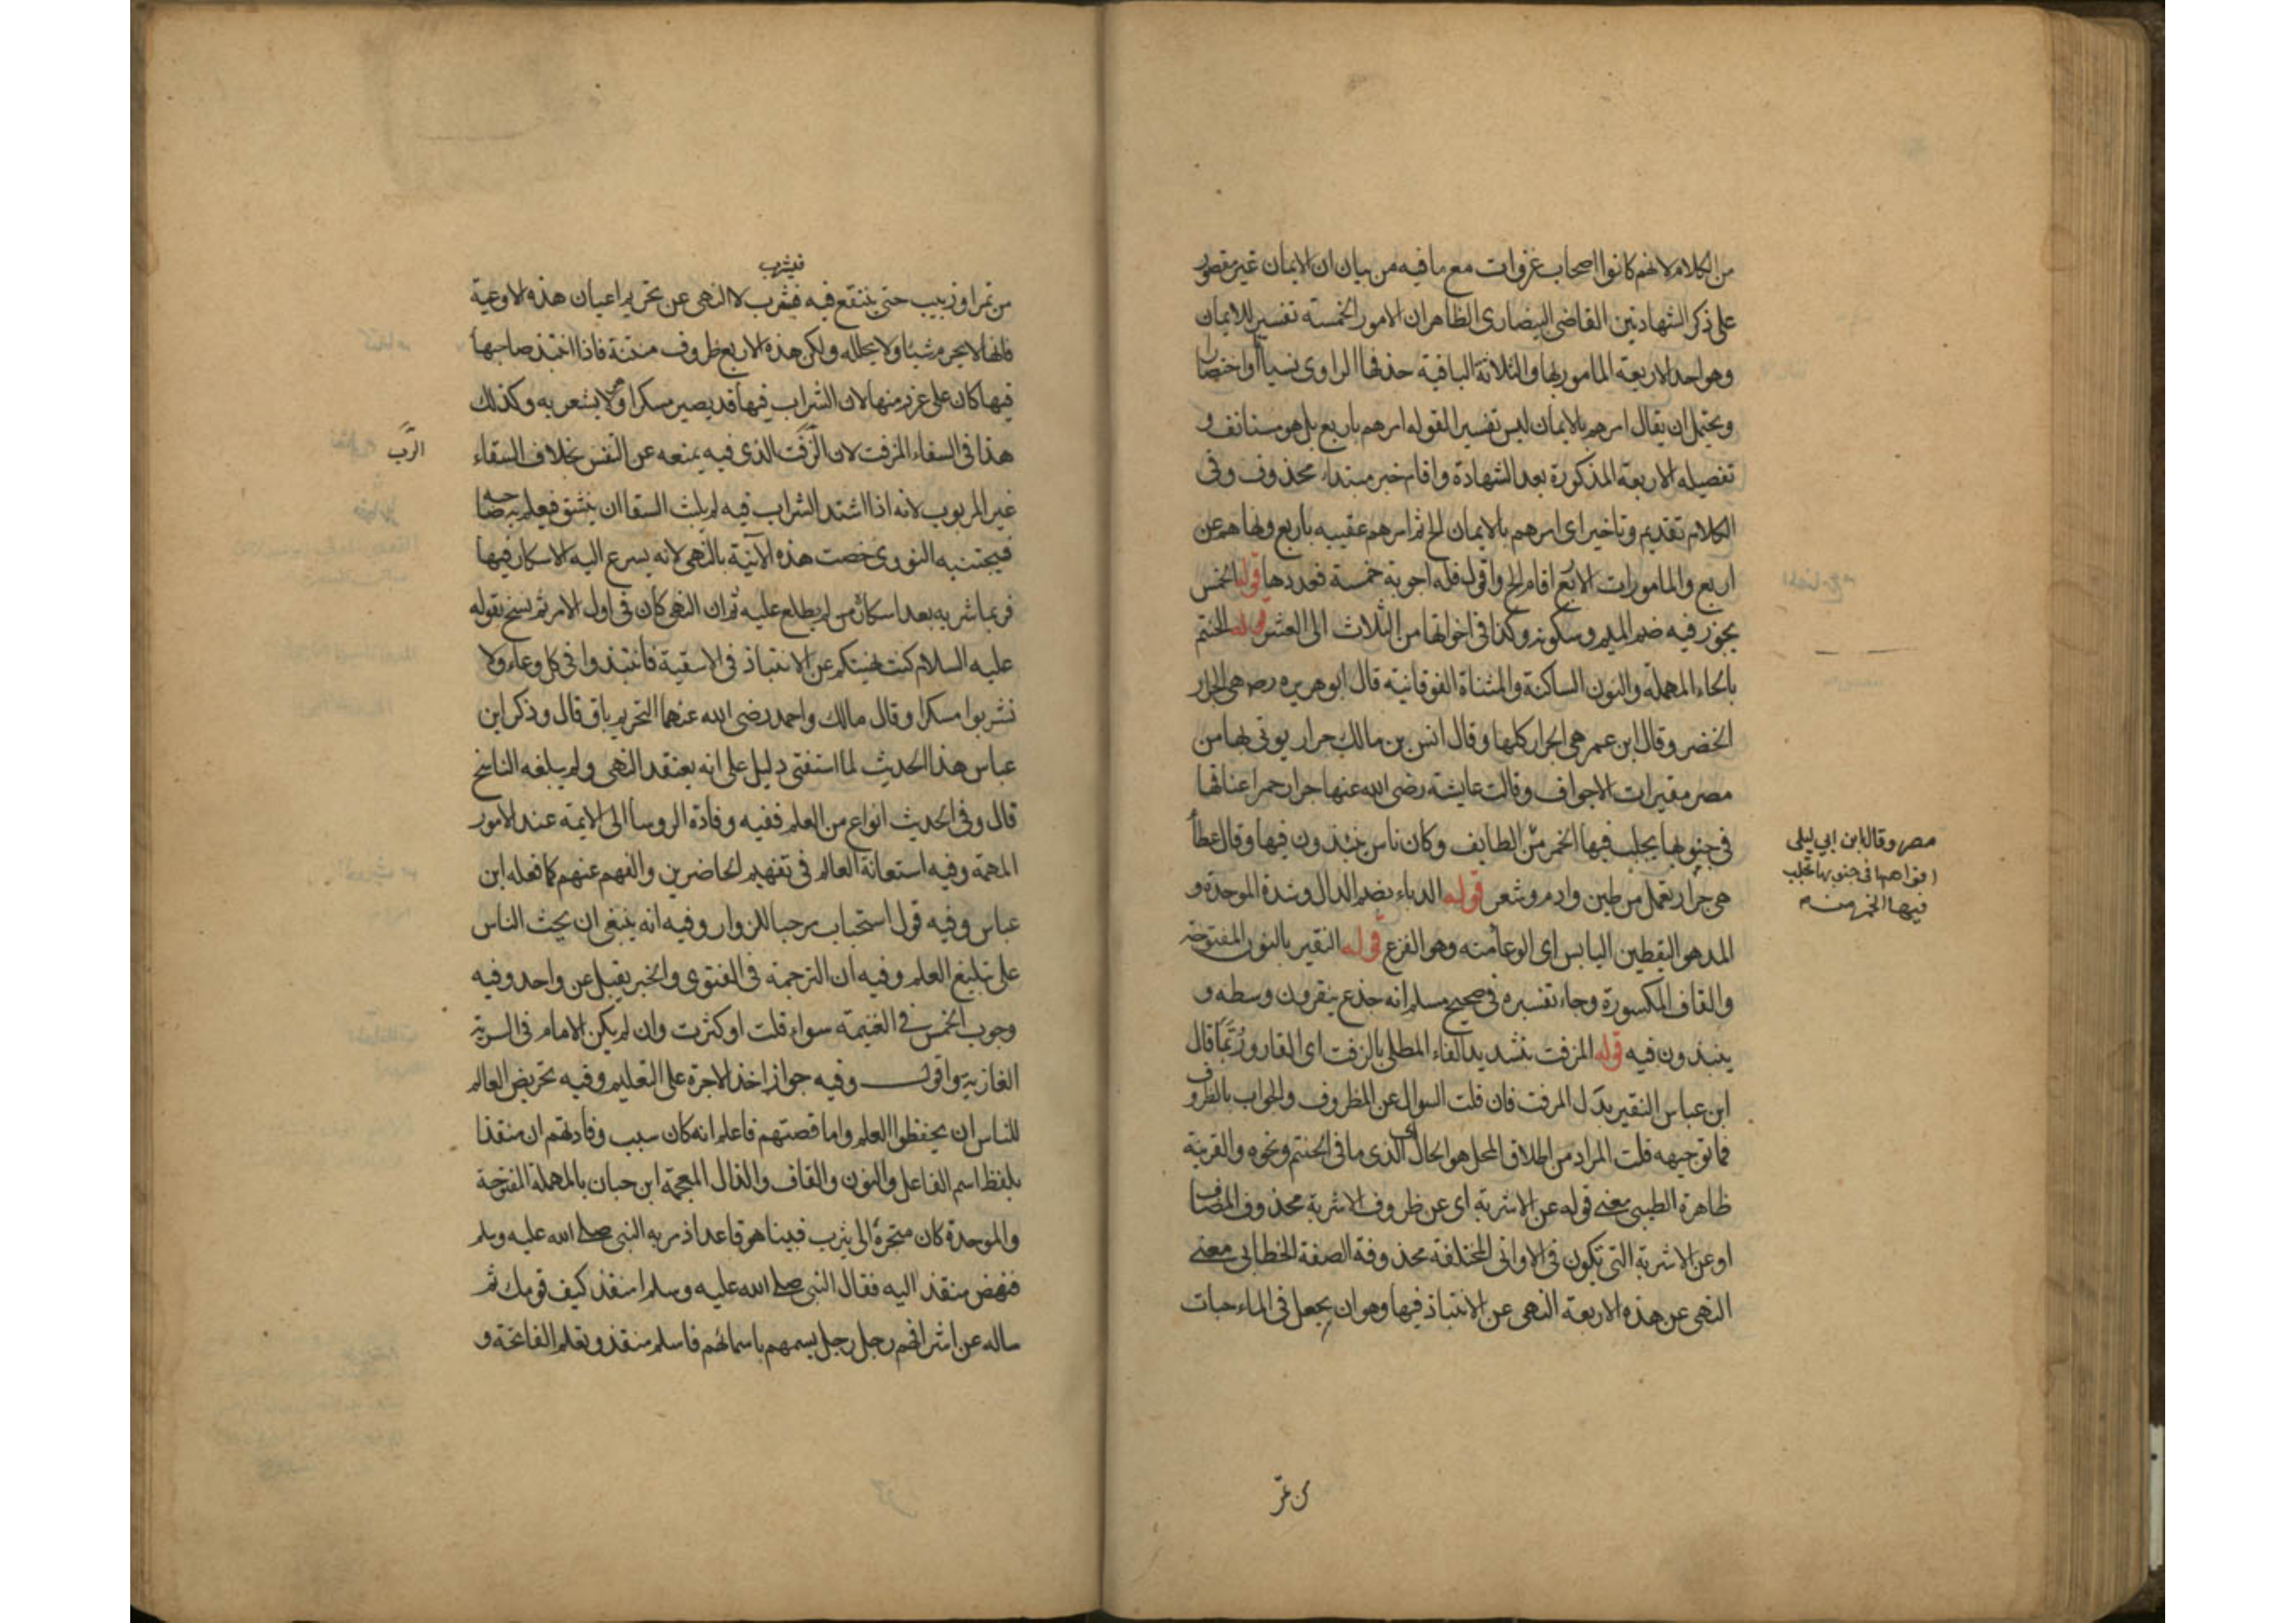 من الكلام لانهم كانوا اصحاب غزوات مع ما فيه من بيان ان الايمان غير مقصور
على ذكر الشهادتين القاضى البيضاوى الظاهر ان الامور الخمسة تفسير للايمان
وهو احد الاربعة المامور بها والثلاثة الباقية حذفها الراوى نسيانا او اختصارا
ويحتمل ان يقال امرهم بالايمان ليس تفسيرا لقوله امرهم باربع بل هو مستانف و
تفصيله الاربعة المذكورة بعد الشهادة واقام خبر مبتداء محذوف وفى
الكلام تقديم وتاخير اى امرهم بالايمان الخ ثم امرهم عقيبه باربع ونهاهم عن
اربع والمامورات الاربع اقام الخ واقول فله اجوبة خمسة فعددها قوله الخمس
يجوز فيه ضم الميم وسكونه وكذا فى اخواتها من الثلاث الى العشر قوله الحنتم
بالحاء المهملة والنون الساكنة والمثناة الفوقانية قال ابو هريره رضه هى الجرار
الخضر وقال ابن عمر هى الجرار كلها وقال انس بن مالك جرار يوتى بها من
مصر مقيرات الاجواف وقالت عايشة رضى الله عنها جرار حمر اعناقها
فى جنوبها يجلب فيها الخمر من الطايف وكان ناس ينتبذون فيها وقال عطا
هى جرار تعمل من طين وادم وشعر قوله الدباء بضم الدال وشدة الموحدة و
المد هو اليقطين اليابس اى الوعا منه وهو القرع قوله النقير بالنون المفتوحة
والقاف المكسورة وجاء تفسيره فى صحيح مسلم انه جذع ينقرون وسطه و
ينبذون فيه قوله المزفت بتشديد الفاء المطلى بالزفت اى القار وربما قال
ابن عباس النقير بدل المزفت فان قلت السوال عن المظروف والجواب بالظروف
فما توجيهه قلت المراد من اطلاق المحل هو الحال اى الذى ما فى الحنتم ونحوه والقرينة
ظاهرة الطيبى معنى قوله عن الاشربة اى عن ظروف الاشربة محذوف المضاف
او عن الاشربة التى تكون فى الاوانى المختلفة محذوفة الصفة الخطابى معنى
النهى عن هذه الاربعة النهى عن الانتباذ فيها وهو ان يجعل فى الماء حبات
من تمر
مصر وقال ابن ابي ليلى
افواهها فى جنوبها يجلب
فيها الخمر من
فيشرب
من تمر او زبيب حتى ينتقع فيه فشرب لا النهى عن تحريم اعيان هذه الاوعية
فانها لا يحرم شيئا ولا يحلله ولكن هذه الاربع ظروف متنة فاذا انتبذ صاحبها
فيها كان على غرر منها لان الشراب فيها قد يصير مسكرا وهو لا يشعر به وكذلك
هذا فى السقاء المزفت لان الزفت الذى فيه يمنعه عن التنفس بخلاف السقاء
الرب
غير المربوب لانه اذا اشتد الشراب فيه لم يلبث السقا ان ينشق فيعلم به صاحبه
فيجتنبه النووى خصت هذه الآنية بالنهى لانه يسرع اليه الاسكار فيها
فربما شربه بعد اسكاره من لم يطلع عليه ثم ان النهى كان فى اول الامر ثم نسخ بقوله
عليه السلام كنت نهيتكم عن الانتباذ فى الاسقية فانتبذوا فى كل وعاء ولا
تشربوا مسكرا وقال مالك واحمد رضى الله عنهما التحريم باق قال وذكر ابن
عباس هذا الحديث لما استفتى دليل على انه يعتقد النهى ولم يبلغه الناسخ
قال وفى الحديث انواع من العلم ففيه وفادة الروسا الى الايمة عند الامور
المهمة وفيه استعانة العالم فى تفهيم الحاضرين والفهم عنهم كما فعله ابن
عباس وفيه قول استحباب مرحبا للزوار وفيه انه ينبغى ان يحث الناس
على تبليغ العلم وفيه ان الترجمة فى الفتوى والخبر يقبل عن واحد وفيه
وجوب الخمس فى الغنيمة سواء قلت او كثرت وان لم يكن الامام فى السرية
الغازية واقول وفيه جواز اخذ الاجرة على التعليم وفيه تحريض العالم
للناس ان يحفظوا العلم واما قصتهم فاعلم انه كان سبب وفادتهم ان منقذا
بلفظ اسم الفاعل والنون والقاف والذال المعجمة ابن حبان بالمهملة المفتوحة
والموحدة كان متجره الى يثرب فبينا هو قاعد اذ مر به النبى صلى الله عليه وسلم
فنهض منقذ اليه فقال النبى صلى الله عليه وسلم امنقذ كيف قومك ثم
ساله عن اشرافهم رجل رجل يسمهم باسمائهم فاسلم منقذ وتعلم الفاتحة و